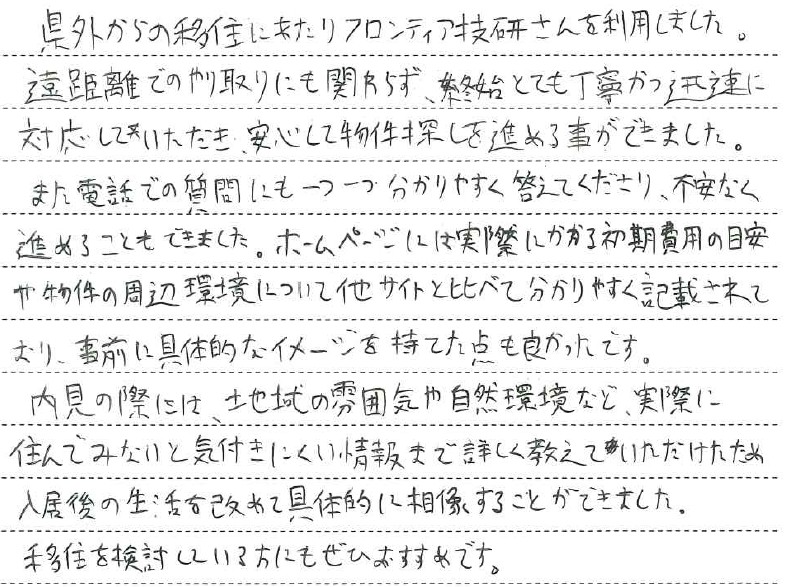 県外からの移住にあたりフロンティア技研さんを利用しました。
遠距離でのやり取りにも関わらず、終始とても丁寧かつ迅速に
対応していただき、安心して物件探しを進める事ができました。
また電話での質問にも一つ一つ分かりやすく答えてくださり、不安なく
進めることもできました。ホームページには実際にかかる初期費用の目安
や物件の周辺環境について他サイトと比べて分かりやすく記載されて
おり、事前に具体的なイメージを持てた点も良かったです。
内見の際には、土地域の雰囲気や自然環境など、実際に
住んでみないと気付きにくい情報まで詳しく教えていただけたため
入居後の生活を改めて具体的に相像することができました。
移住を検討している方にもぜひおすすめです。